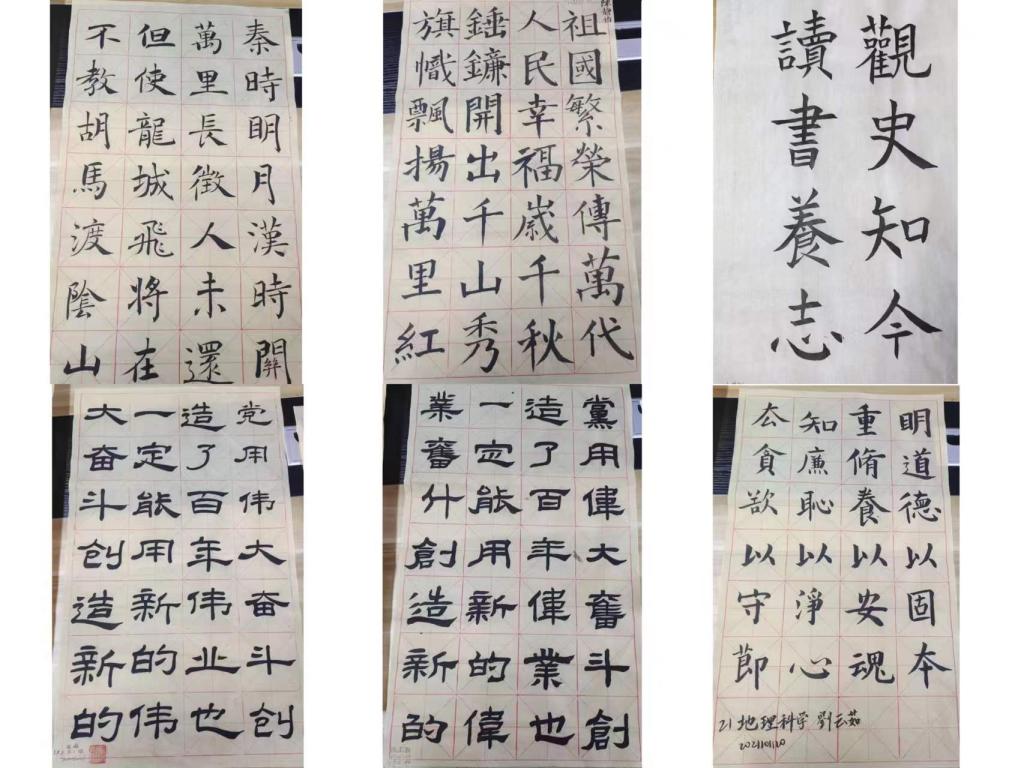 秦時明月漢時關
萬里長徵人未還
但使龍城飛將在
不教胡馬渡陰山
祖國繁榮傳萬代
人民幸福歲千秋
錘鐮開出千山秀
旗幟飄揚萬里紅
觀史知今
讀書養志
党用伟大奋斗创
造了百年伟业也
一定能用新的伟
大奋斗创造新的
黨用偉大奮斗創
造了百年偉業也
一定能用新的偉
業奮什創造新的
明道德以固本
重脩養以安魂
知廉恥以淨心
去貪欲以守節
21地理科学 劉云茹